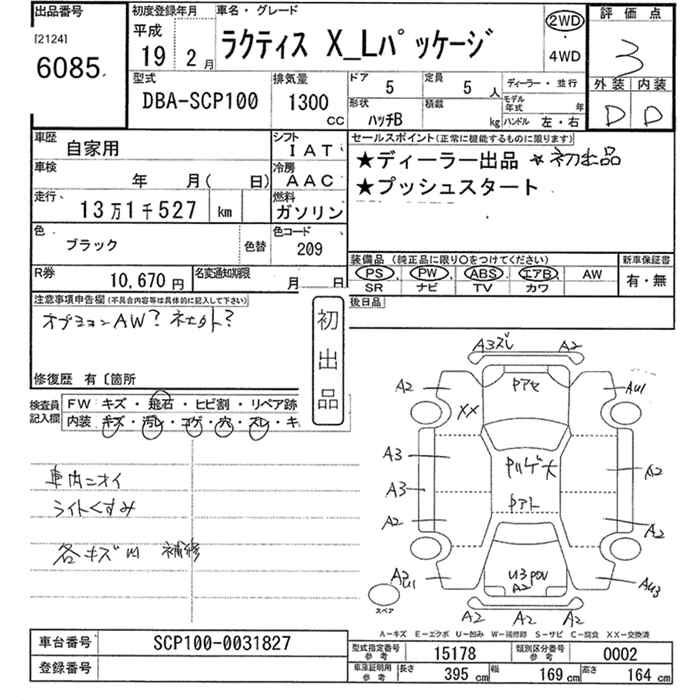 出品番号
[2124]
6085
初度登録年月
平成
19 2 月
車名・グレード
ラクティス X_Lパッケージ
2WD
・
4WD
評価点
3
外装 内装
D D
型式
DBA-SCP100
排気量
1300 CC
ドア 5
定員 5 人
ディーラー・並行
形状 ハッチB
積載 kg
モデル年式 年
ハンドル 左・右
車歴 自家用
シフト IAT
車検 年 月( 日)
冷房 AAC
走行 13万1千527 km
燃料 ガソリン
色 ブラック
色替
色コード 209
R券 10,670円
名変通知期限 月 日
セールスポイント(正常に機能するものに限ります)
★ディーラー出品 ★初出品
★プッシュスタート
装備品(純正品に限り○をつけてください)
PS・PW・ABS・エアB・AW
SR ナビ TV カワ
新車保証書
有・無
後日品
注意事項申告欄(不具合内容等は具体的に記入して下さい)
オプションAW?
修復歴 有〔箇所
初出品
検査員記入欄
FW キズ・飛石・ヒビ割・リペア跡
内装 キズ・汚レ・コゲ・穴・スレ・キ
車内ニオイ
ライトくすみ
各キズ凹 補修
A3ズレ A2
A2 AU1
XX
A3 A2
A3
A2 A2
A2 AU3
U3
A2
A2 A2 A2
スペア
A-キズ E-エクボ U-凹み W-補修跡 S-サビ C-腐食 XX-交換済
車台番号 SCP100-0031827
登録番号
型式指定番号 参考 15178
類別区分番号 参考 0002
車庫証明用 参考 長さ 395 cm 幅 169 cm 高さ 164 cm